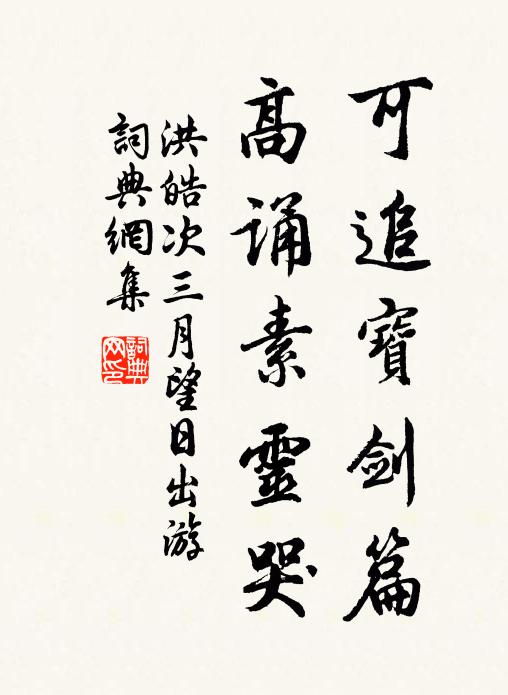 可追寶劍篇
高誦素靈哭
洪皓次三月望日出游
詞典網集
詞典
网印